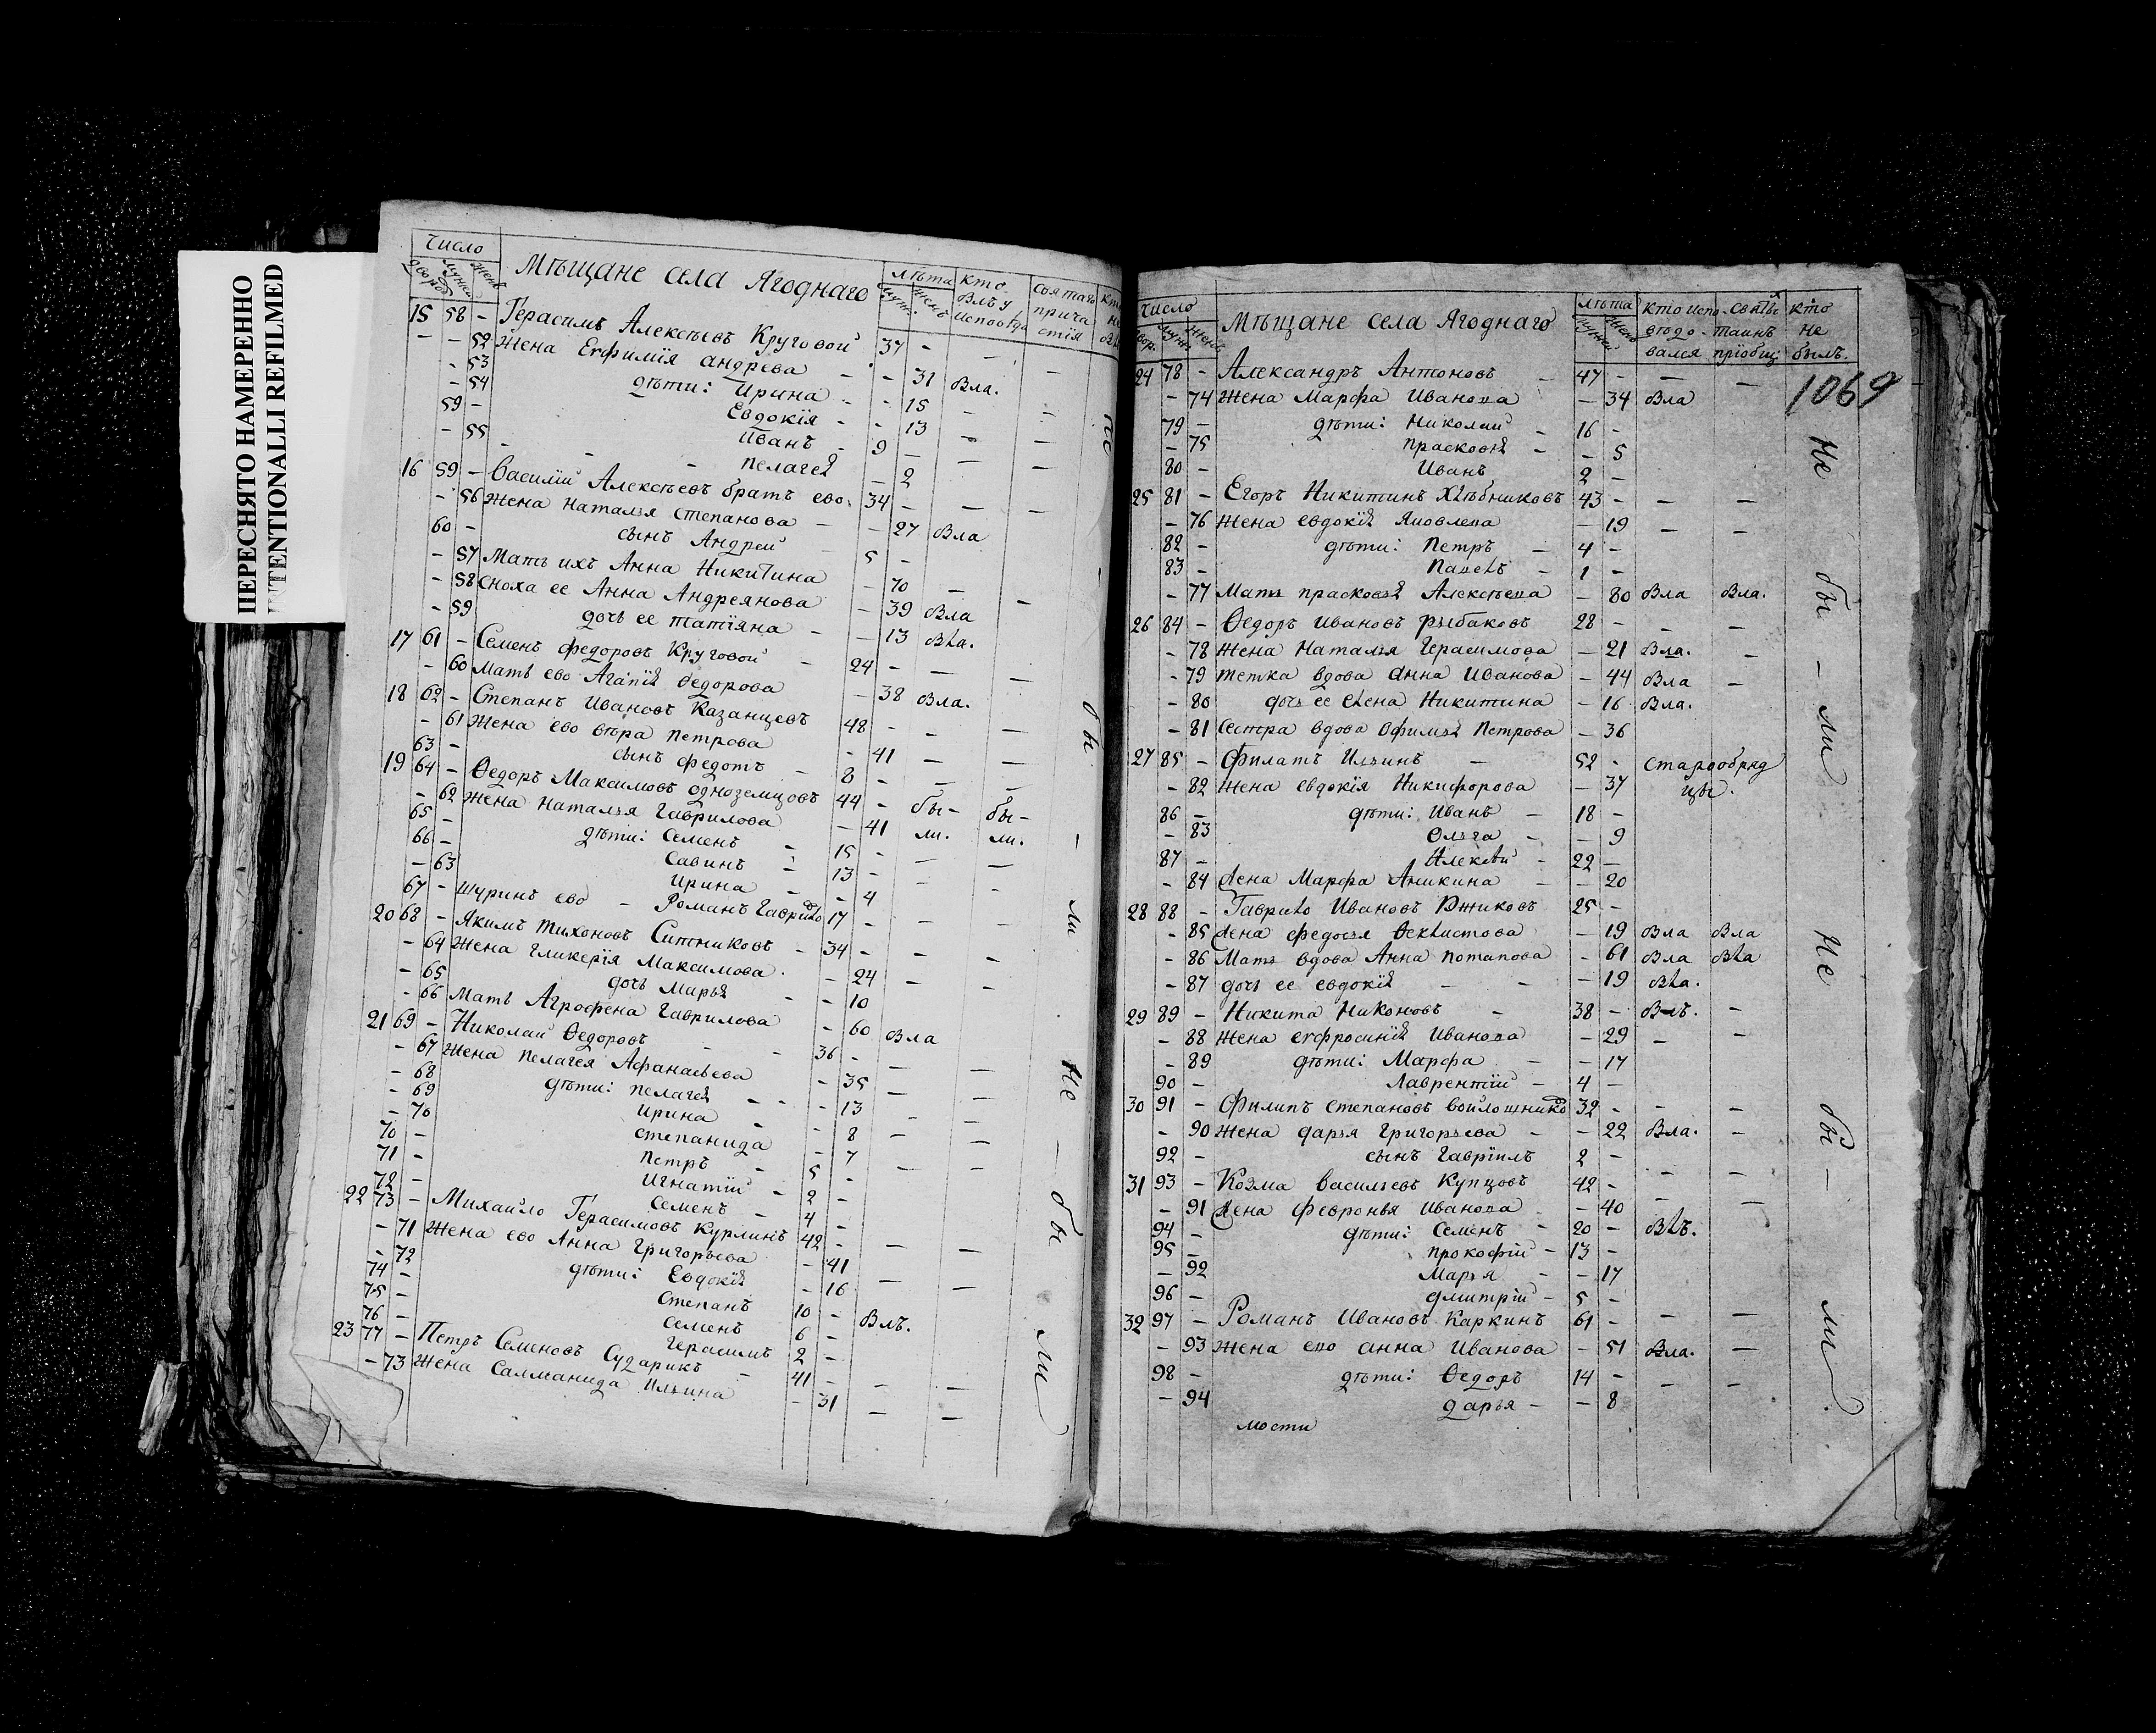 ПЕРЕСНЯТО НАМЕРЕННО
INTENTIONALLI REFILMED
Число
Мѣщане села Ягоднаго
лѣта
кто
былъ у
исповѣди
святаго
прича
стія
15 58 - Герасимъ Алексѣевъ Круговой 37 -
- - 52 Жена Евфимія Андрева - - 31 Была.
- 53 дѣти: Ирина - - 15
- 54 Евдокія - - 13
59 - Иванъ - 9 -
- 55 Пелагея - 2
16 59 - Василій Алексѣевъ братъ ево. 34 -
- 56 Жена Наталья Степанова - - 27 Бла
60 - сынъ Андрей 5 -
- 57 Мать ихъ Анна Никитина - 70 -
- 58 Сноха ее Анна Андреянова - 39 Бла
- 59 дочь ее Татіяна - - 13 Бла.
17 61 - Семенъ Федоровъ Круговой - 24 -
- 60 Мать ево Агапія Ѳедорова - 38 Бла.
18 62 - Степанъ Ивановъ Казанцевъ 48 -
- 61 Жена ево Вѣра Петрова - 41
63 - сынъ Федотъ - 8 -
19 64 - Ѳедоръ Максимовъ Одноземцовъ 44 - бы- бы-
- 62 Жена Наталья Гаврилова - 41 ли. ли.
65 - дѣти: Семенъ - 15 -
66 - Савинъ - 13 -
- 63 Ирина - - 4
67 - Шуринъ ево - Романъ Гаврило 17 -
20 68 - Якимъ Тихоновъ Ситниковъ - 34 -
- 64 Жена Гликерія Максимова. - 24
- 65 дочь Марья - - 10
- 66 Мать Агрофена Гаврилова - 60 Бла
21 69 - Николай Ѳедоровъ - - 36 -
- 67 Жена Пелагея Афанасьева - 35
- 68 дѣти: Пелагея - - - 13
- 69 Ирина - - 8
- 70 Степанида - 7
70 - Петръ - 5 -
71 - Игнатій - 2 -
72 - Семенъ - 4 -
22 73 - Михайло Герасимовъ Курлинъ 42 -
- 71 Жена ево Анна Григорьева - 41
- 72 дѣти: Евдокія - 16
74 - Степанъ 10 - Влъ.
75 - Семенъ 6 -
76 - Герасимъ 2 -
23 77 - Петръ Семеновъ Сударикъ - 41 -
- 73 Жена Салманида Ильина - 31
бы - ли Не - бы ли
Число
Мѣщане села Ягоднаго
лѣта
кто испо
вѣдо
вался
святы
таинъ
пріобщ:
кто
не
былъ.
1069
24 78 - Александръ Антоновъ - 47 -
- 74 Жена Марфа Иванова - 34 Вла
79 - дѣти: Николай - 16 -
- 75 Прасковья - - 5
80 - Иванъ 2 -
25 81 - Егоръ Никитинъ Хлѣбниковъ 43 -
- 76 Жена Евдокія Яковлева - 19
82 - дѣти: Петръ - 4 -
83 - Павелъ - 1 -
- 77 Мать Прасковья Алексѣева - 80 Вла Вла.
26 84 - Ѳедоръ Ивановъ Рыбаковъ 28 -
- 78 Жена Наталья Герасимова - 21 Вла.
- 79 Тетка вдова Анна Иванова - 44 Вла -
- 80 дочь ее Елена Никитина - 16 Вла.
- 81 Сестра вдова Офимья Петрова - 36
27 85 - Филатъ Ильинъ - 52 - Старообряд
- 82 Жена Евдокія Никифорова - 37 цы.
86 - дѣти: Иванъ - 18 -
- 83 Ольга - - 9
87 - Алексѣй - 22 -
- 84 Жена Марфа Аникина - - 20
28 88 - Гаврило Ивановъ 25 -
- 85 Жена Федосья Ѳеклистова - 19 Вла Вла
- 86 Мать вдова Анна Потапова - 61 Вла Вла
- 87 дочь ее Евдокія - - - 19 Вла.
29 89 - Никита Никоновъ - 38 - Влъ. -
- 88 Жена Евфросинія Иванова - 29
- 89 дѣти: Марфа - - 17
90 - Лаврентій - 4 -
30 91 - Филипъ Степановъ Войлошнико 32 -
- 90 Жена Дарья Григорьева - - 22 Вла. -
92 - сынъ Гавріилъ 2 -
31 93 - Козма Васильевъ Купцовъ 42 -
- 91 Жена Февронья Иванова - 40
94 - дѣти: Семенъ - 20 - Влъ.
95 - Прокофій - 13 -
- 92 Марья - - 17
96 - Дмитрій - 5 -
32 97 - Романъ Ивановъ Каркинъ 61 -
- 93 Жена ево Анна Иванова - 51 Вла. -
98 - дѣти: Ѳедоръ 14 -
- 94 Дарья - - 8
мости
Не бы - ли Не бы - ли